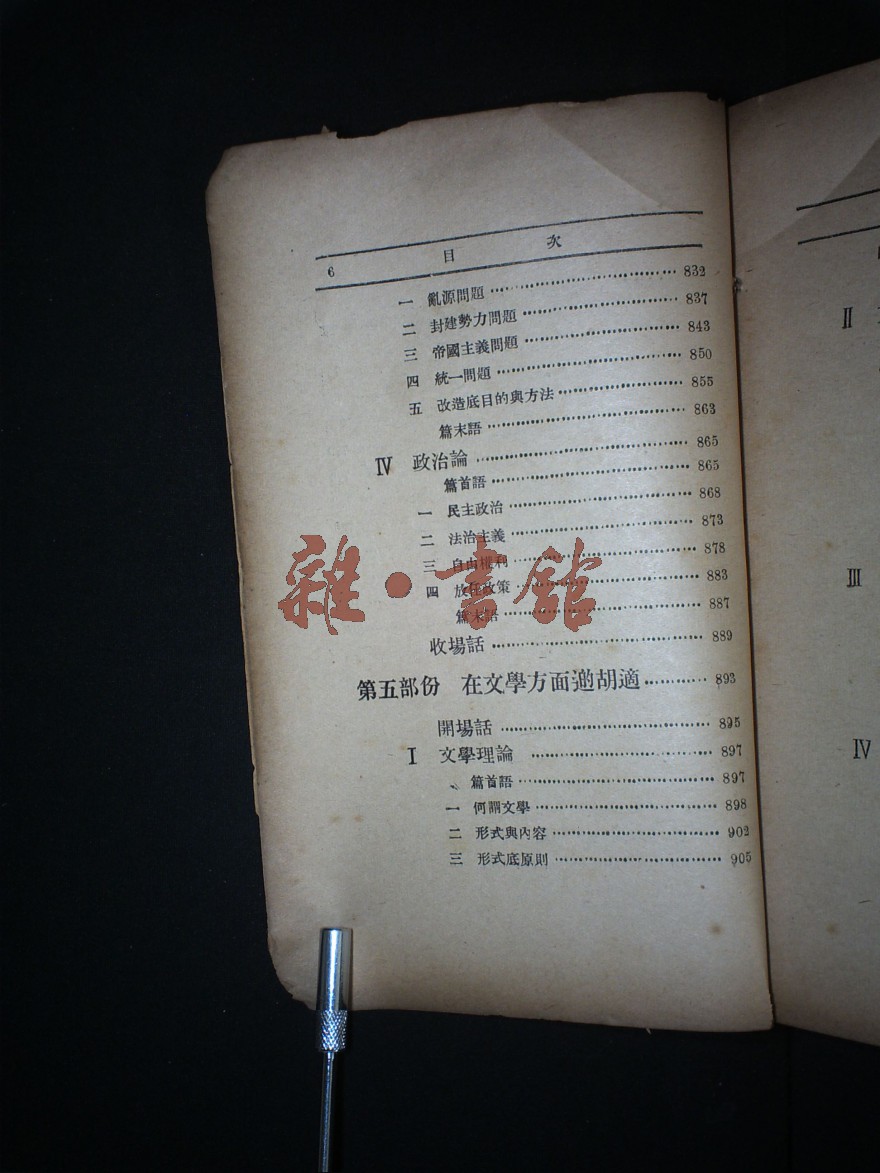 6 目 次
一 亂源問題 832
二 封建勢力問題 837
三 帝國主義問題 843
四 統一問題 850
五 改造底目的與方法 855
篇末語 863
Ⅳ 政治論 865
篇首語 865
一 民主政治 868
二 法治主義 873
三 自由權利 878
四 放任政策 883
篇末語 887
收場話 889
第五部份 在文學方面邀胡適 893
開場話 895
Ⅰ 文學理論 897
篇首語 897
一 何謂文學 898
二 形式與內容 902
三 形式底原則 905
雜·書館
Ⅱ
Ⅲ
Ⅳ